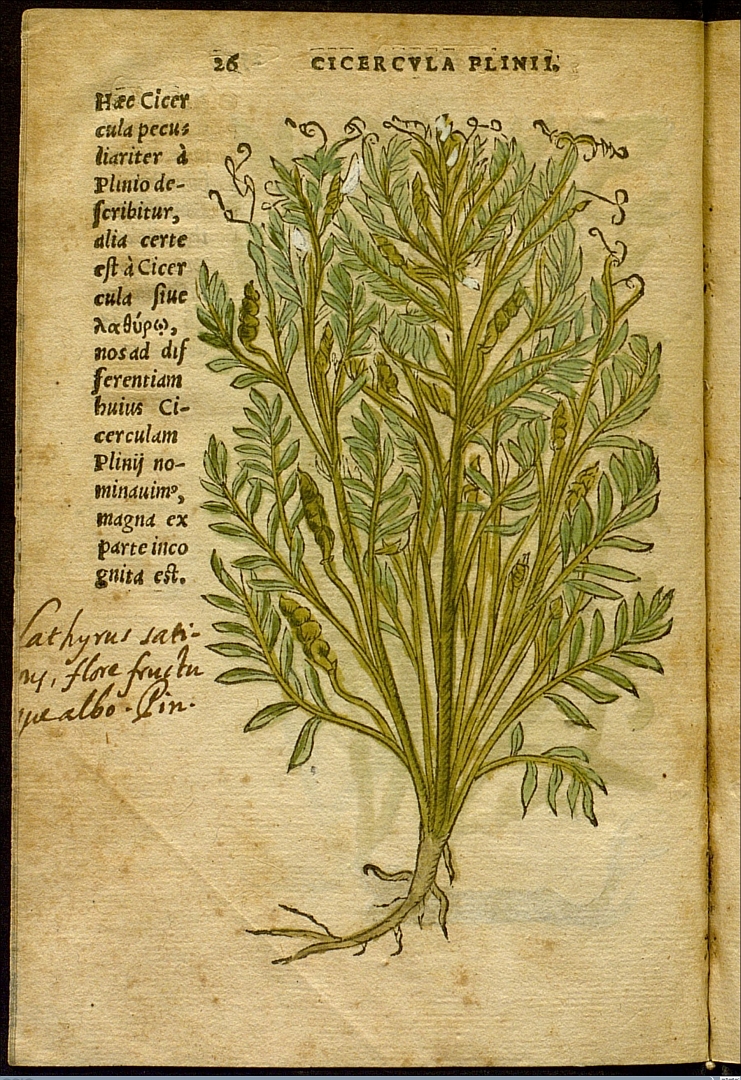 26 CICERCVLA PLINII.
Hæc Cicer
cula pecu-
liariter à
Plinio de-
ſcribitur,
alia certe
eſt à Cicer
cula ſiue
λαθύρῳ,
nos ad dif
ferentiam
huius Ci-
cerculam
Plinij no-
minauimꝰ,
magna ex
parte inco
gnita eſt.
Lathyrus sati-
vus, flore fructu
que albo. Pin.